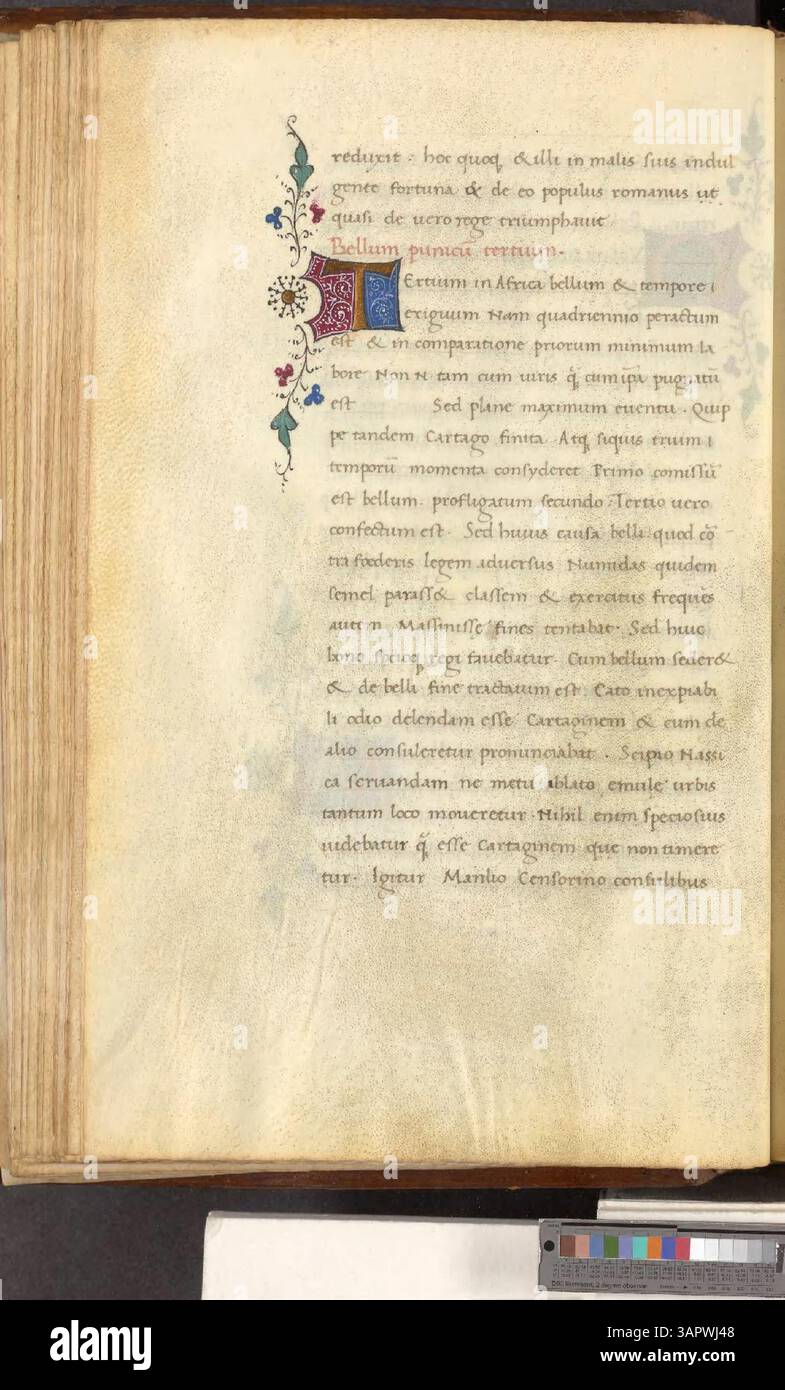 reduxit . hoc quoq̨ & illi in malis suis indul
gente fortuna & de eo populus romanus ut
quasi de vero rege triumphavit
Bellum punicū tertium.
TErtium in Africa bellum & tempore
exiguum Nam quadriennio peractum
est & in comparatione priorum minimum la
bore Non N tam cum viris q̃ cum ip̄a pugnatū
est Sed plane maximum eventu . Quip
pe tandem Cartago finita . Atq̨ siquis trium
temporū momenta consyderet Primo comissū
est bellum . profligatum secundo . Tertio vero
confectum est . Sed huius causa belli quod cō
tra foederis legem adversus Numidas quidem
semel parass& classem & exercitus frequēs
autem Massinisse fines tentabat . Sed huic
bono socioq̨ regi favebatur . Cum bellum seder&
& de belli fine tractatum est . Cato inexpiabi
li odio delendam esse Cartaginem & cum de
alio consuleretur pronunciabat . Scipio Nassi
ca servandam ne metu ablato emule urbis
tantum loco moveretur . Nihil enim speciosius
videbatur q̃ esse Cartaginem que non timere
tur . Igitur Manlio Censorino consulibus
alamy
Image ID: 3APWJ48
www.alamy.com